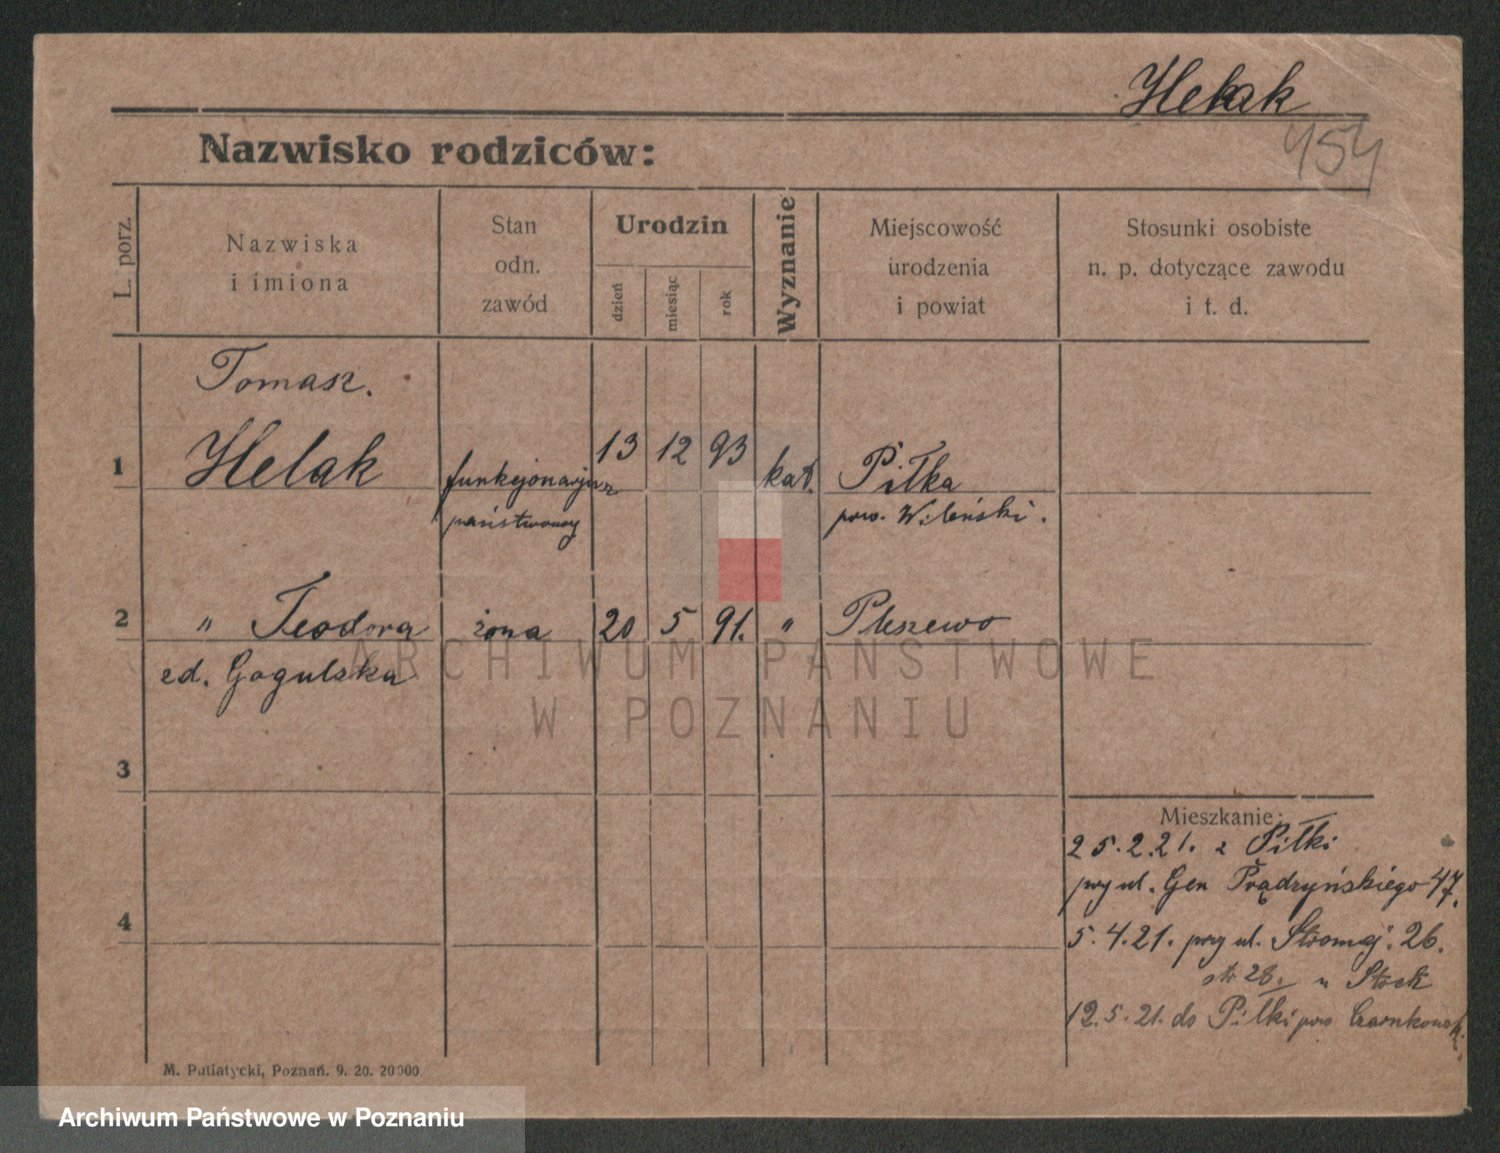 Helak
454
Nazwisko rodziców:
L. porz.
Nazwiska
i imiona
Stan
odn.
zawód
Urodzin
dzień
miesiąc
rok
Wyznanie
Miejscowość
urodzenia
i powiat
Stosunki osobiste
n. p. dotyczące zawodu
i t. d.
Tomasz.
1 Helak funkcjonarjusz 13 12 93 kat. Piłka
państwowy pow. Wileński.
2 " Teodora żona 20 5 91. " Pleszewo
ed. Gogulska
ARCHIWUM PAŃSTWOWE
W POZNANIU
3
Mieszkanie:
25.2.21. z Piłki
przy ul. Gen Prądzyńskiego 47.
4
5.4.21. przy ul. Stromej. 26.
str 26. u Stock
12.5.21. do Piłki pow Czarnkowsk.
M. Putiatycki, Poznań. 9. 20. 20000
Archiwum Państwowe w Poznaniu